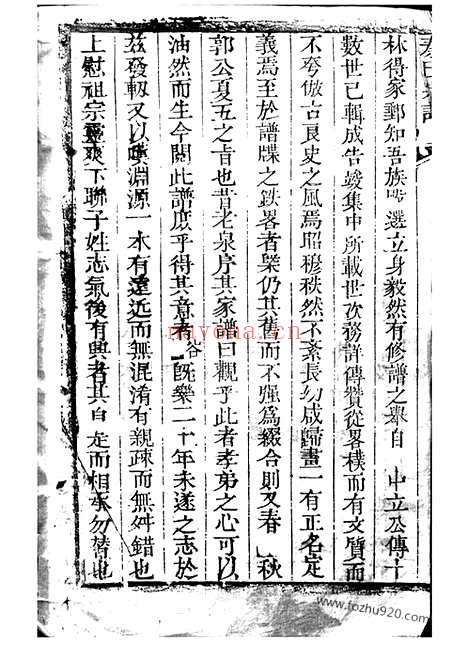 林得家郵知吾族 選立身毅然有修譜之舉自 中立公傳十
數世已輯成告竣集中所載世次務詳傳贊從畧樸而有文質而
不夸倣古良史之風焉昭穆秩然不紊長幼咸歸畫一有正名定
義焉至於譜牒之鉄畧者槩仍其舊而不强為綴合則又春秋
郭公夏五之旨也昔老泉序其家譜曰觀乎此者孝弟之心可以
油然而生今閱此譜庶乎得其意者 谷旣樂二十年未遂之志於
茲發軔又以嘆淵源一水有遠近而無混淆有親疎而無舛錯也
上慰祖宗靈爽下聯子姓志氣後有興者其自 走而相承勿替也
nayona.cn
www.fozhu920.com